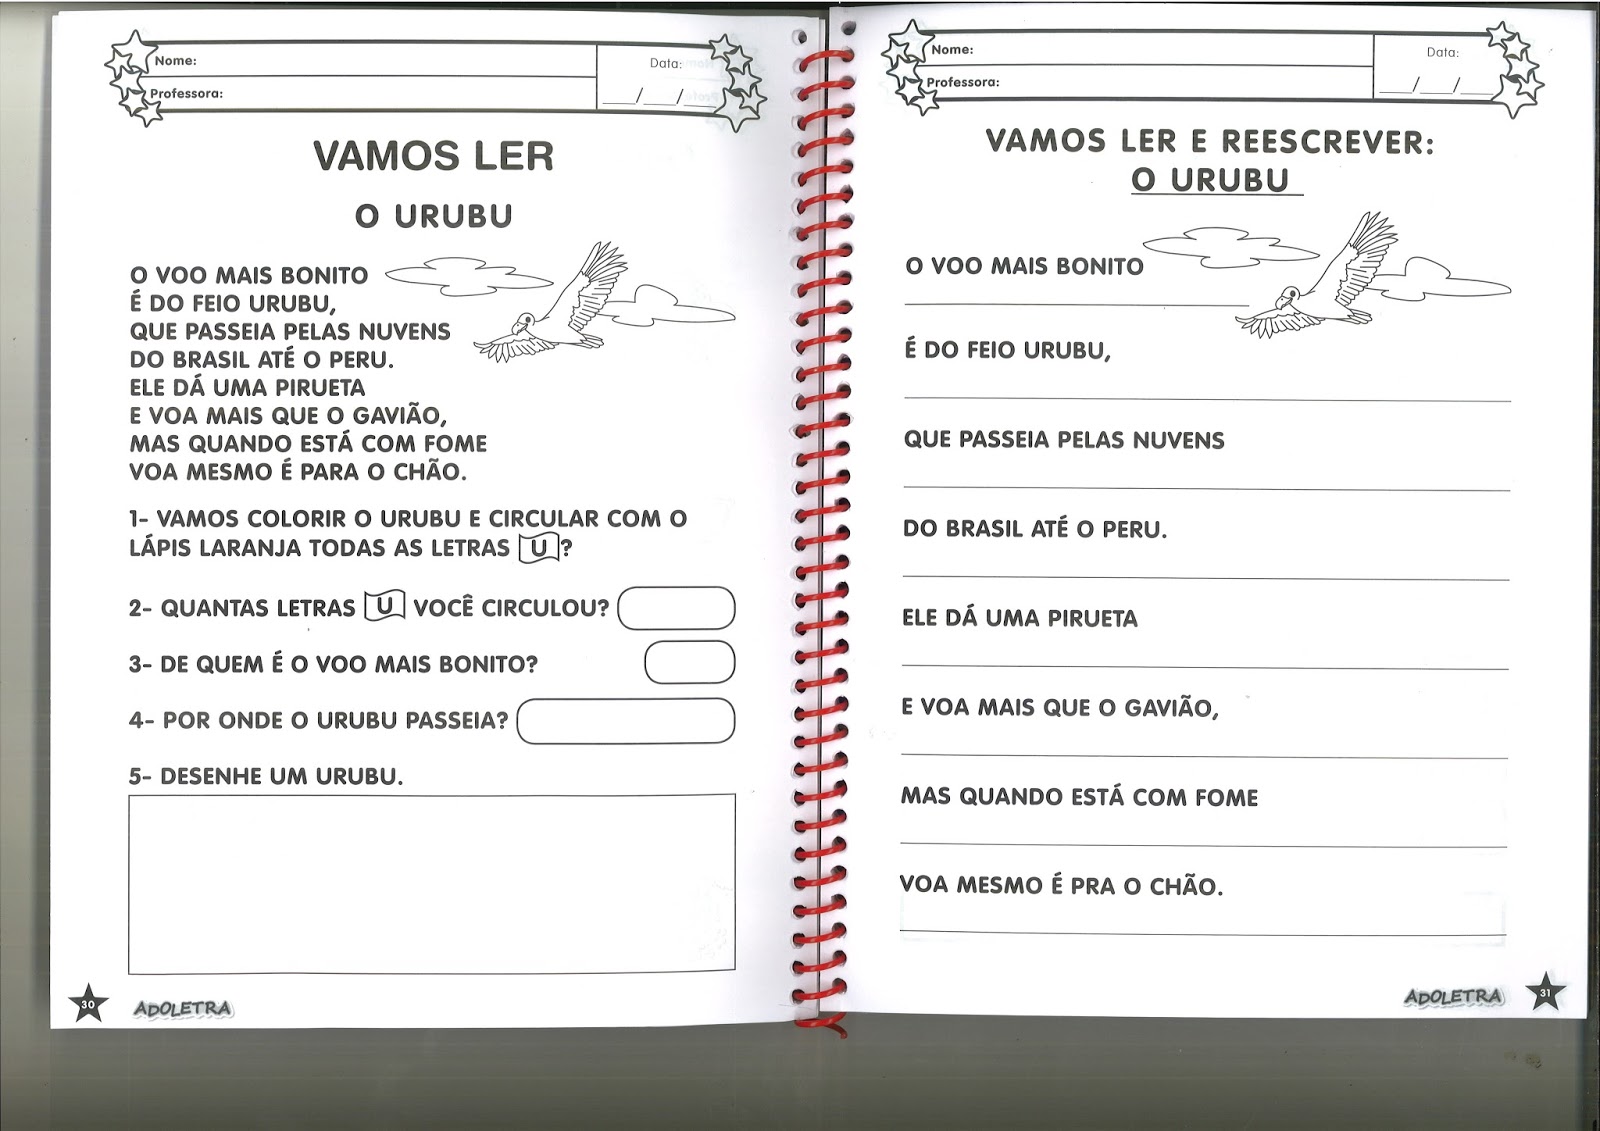 Nome:
Data:
Professora:
___/___/___
VAMOS LER
O URUBU
O VOO MAIS BONITO
É DO FEIO URUBU,
QUE PASSEIA PELAS NUVENS
DO BRASIL ATÉ O PERU.
ELE DÁ UMA PIRUETA
E VOA MAIS QUE O GAVIÃO,
MAS QUANDO ESTÁ COM FOME
VOA MESMO É PARA O CHÃO.
1- VAMOS COLORIR O URUBU E CIRCULAR COM O
LÁPIS LARANJA TODAS AS LETRAS U?
2- QUANTAS LETRAS U VOCÊ CIRCULOU?
3- DE QUEM É O VOO MAIS BONITO?
4- POR ONDE O URUBU PASSEIA?
5- DESENHE UM URUBU.
30
ADOLETRA
Nome:
Data:
Professora:
___/___/___
VAMOS LER E REESCREVER:
O URUBU
O VOO MAIS BONITO
É DO FEIO URUBU,
QUE PASSEIA PELAS NUVENS
DO BRASIL ATÉ O PERU.
ELE DÁ UMA PIRUETA
E VOA MAIS QUE O GAVIÃO,
MAS QUANDO ESTÁ COM FOME
VOA MESMO É PRA O CHÃO.
ADOLETRA
31